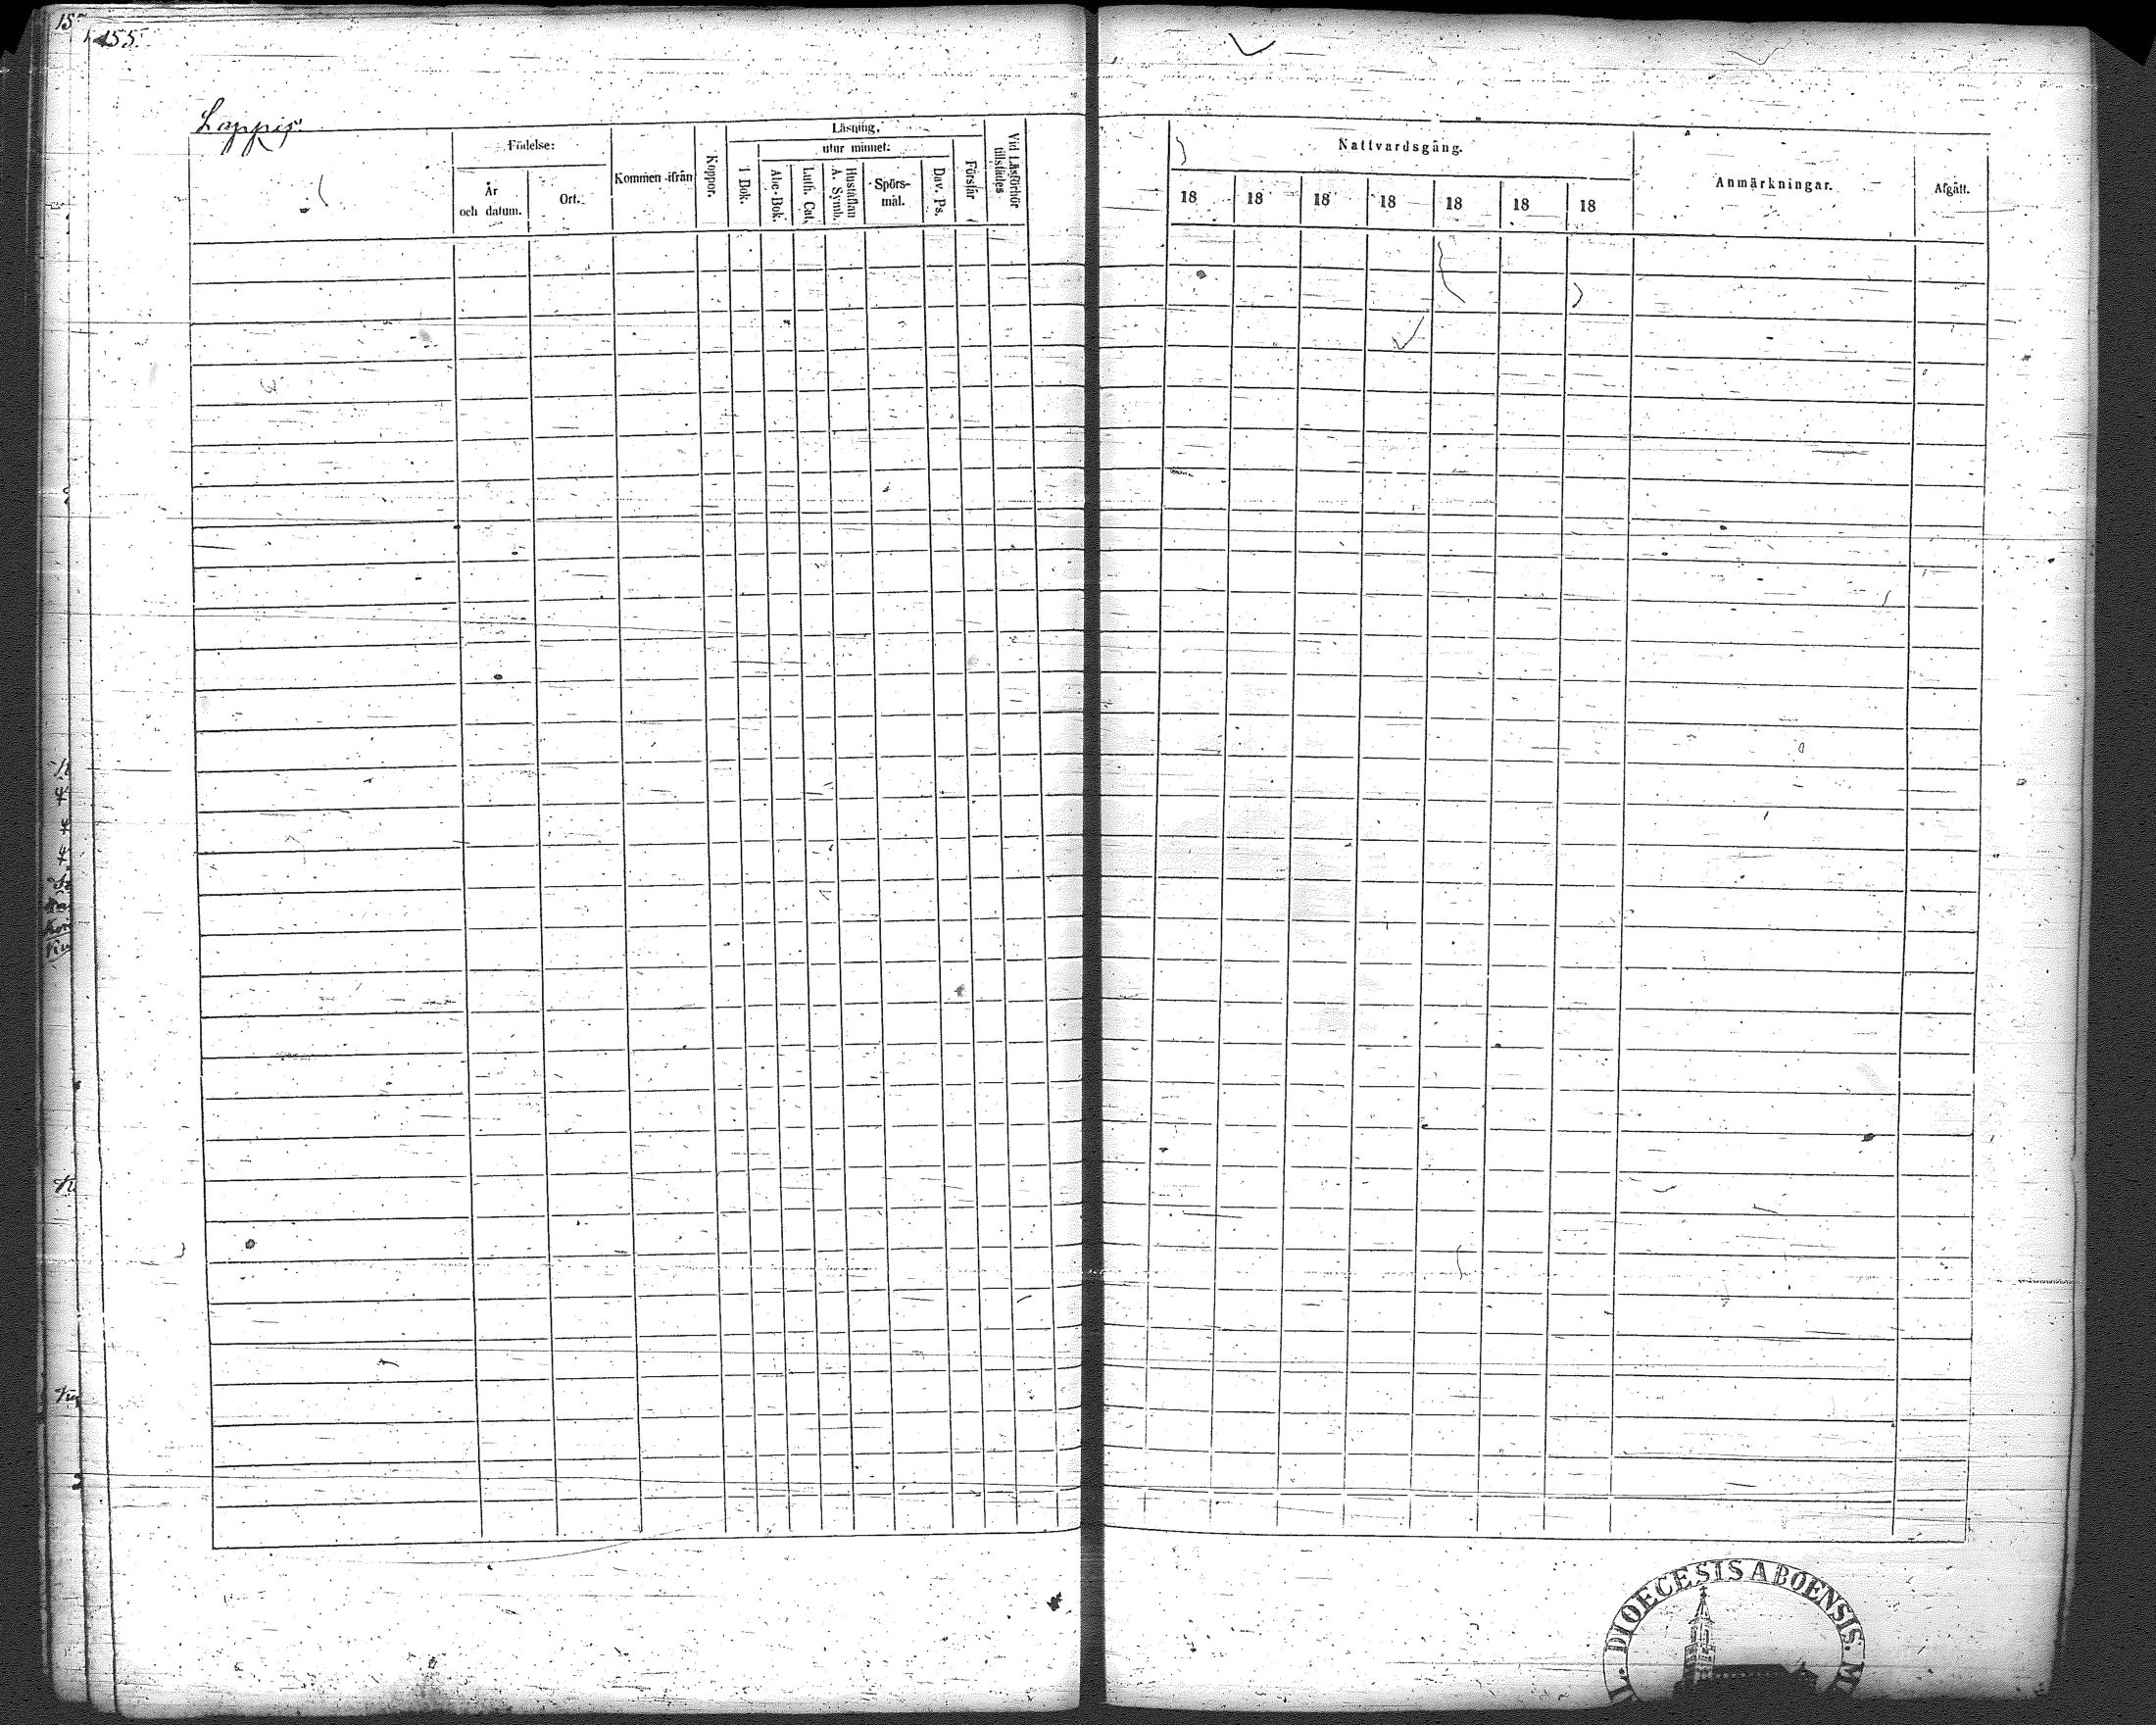 155.
Lappis.
Födelse:
År
och datum.
Ort.
Kommen ifrån
Koppor.
Läsning,
utur minnet:
I Bok.
Abc-Bok.
Luth. Cat.
Hustaflan
A. Symb.
Spörs-
mål.
Dav. Ps.
Förstår
Vid Läsförhör
tillstädes
Nattvardsgång.
18 18 18 18 18 18 18
Anmärkningar.
Afgått.
DIOECESIS ABOENSIS. M